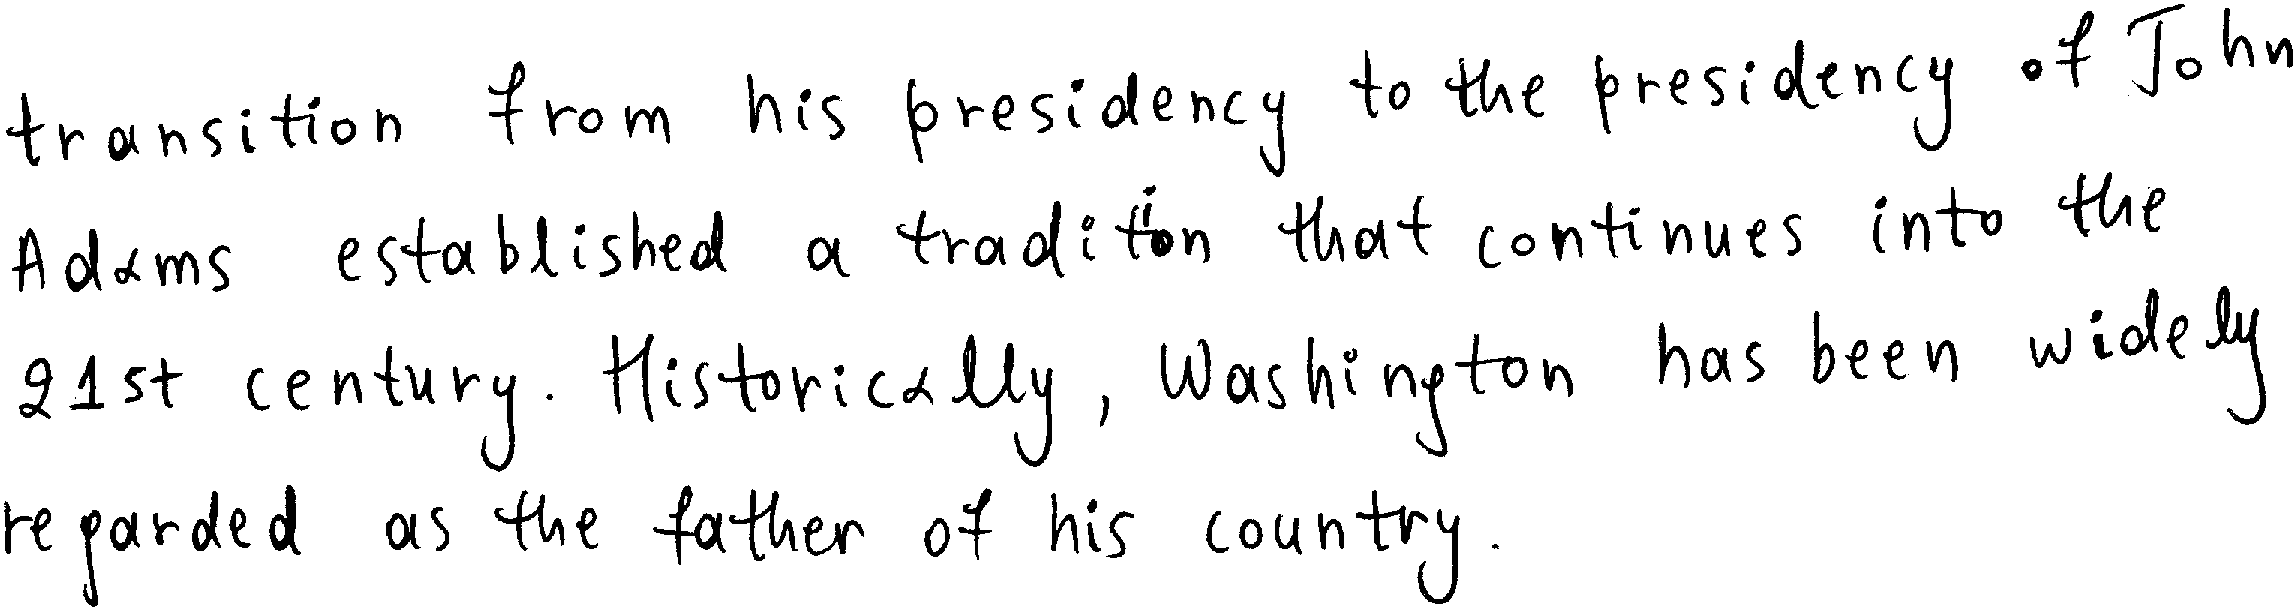 transition from his presidency to the presidency of John
Adams established a tradition that continues into the
21st century. Historically, Washington has been widely
regarded as the father of his country.